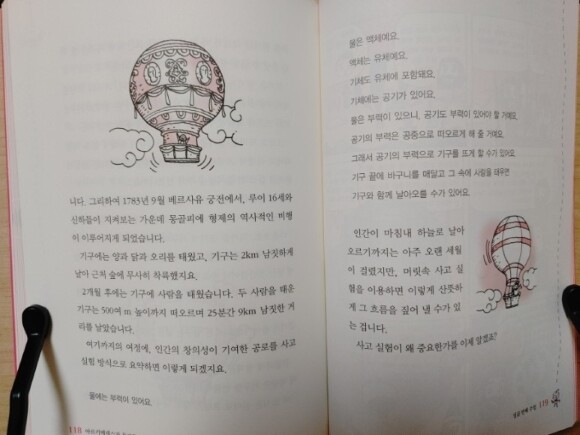 니다. 그리하여 1783년 9월 베르사유 궁전에서, 루이 16세와
신하들이 지켜보는 가운데 몽골피에 형제의 역사적인 비행
이 이루어지게 되었습니다.
기구에는 양과 닭과 오리를 태웠고, 기구는 2km 남짓하게
날아 근처 숲에 무사히 착륙했지요.
2개월 후에는 기구에 사람을 태웠습니다. 두 사람을 태운
기구는 500여 m 높이까지 떠오르며 25분간 9km 남짓한 거
리를 날았습니다.
여기까지의 여정에, 인간의 창의성이 기여한 공로를 사고
실험 방식으로 요약하면 이렇게 되겠지요.
물에는 부력이 있어요.
118
물은 액체예요.
액체는 유체예요.
기체도 유체에 포함돼요.
기체에는 공기가 있어요.
물은 부력이 있으니, 공기도 부력이 있어야 할 거예요.
공기의 부력은 공중으로 떠오르게 해 줄 거예요.
그래서 공기의 부력으로 기구를 뜨게 할 수가 있어요.
기구 끝에 바구니를 매달고 그 속에 사람을 태우면
기구와 함께 날아오를 수가 있어요.
인간이 마침내 하늘로 날아
오르기까지는 아주 오랜 세월
이 걸렸지만, 머릿속 사고 실
험을 이용하면 이렇게 산뜻하
게 그 흐름을 짚어 낼 수가 있
는 겁니다.
사고 실험이 왜 중요한가를 이제 알겠죠?
119